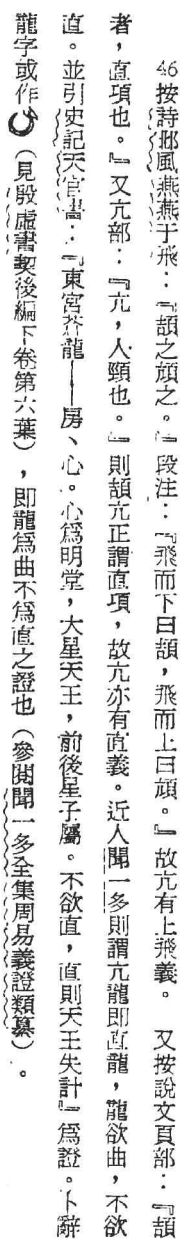 46按詩邶風燕燕于飛：『頡之頏之。』段注：『飛而下曰頡，飛而上曰頏。』故亢有上飛義。　又按說文頁部：『頡
者，直項也。』又亢部：『亢，人頸也。』則頡亢正謂直項，故亢亦有直義。近人聞一多則謂亢龍即直龍，龍欲曲，不欲
直。並引史記天官書：『東宮蒼龍——房、心。心爲明堂，大星天王，前後星子屬。不欲直，直則天王失計』爲證。卜辭
龍字或作（見殷虛書契後編下卷第六葉），即龍爲曲不爲直之證也（參閱聞一多全集周易義證類纂）。